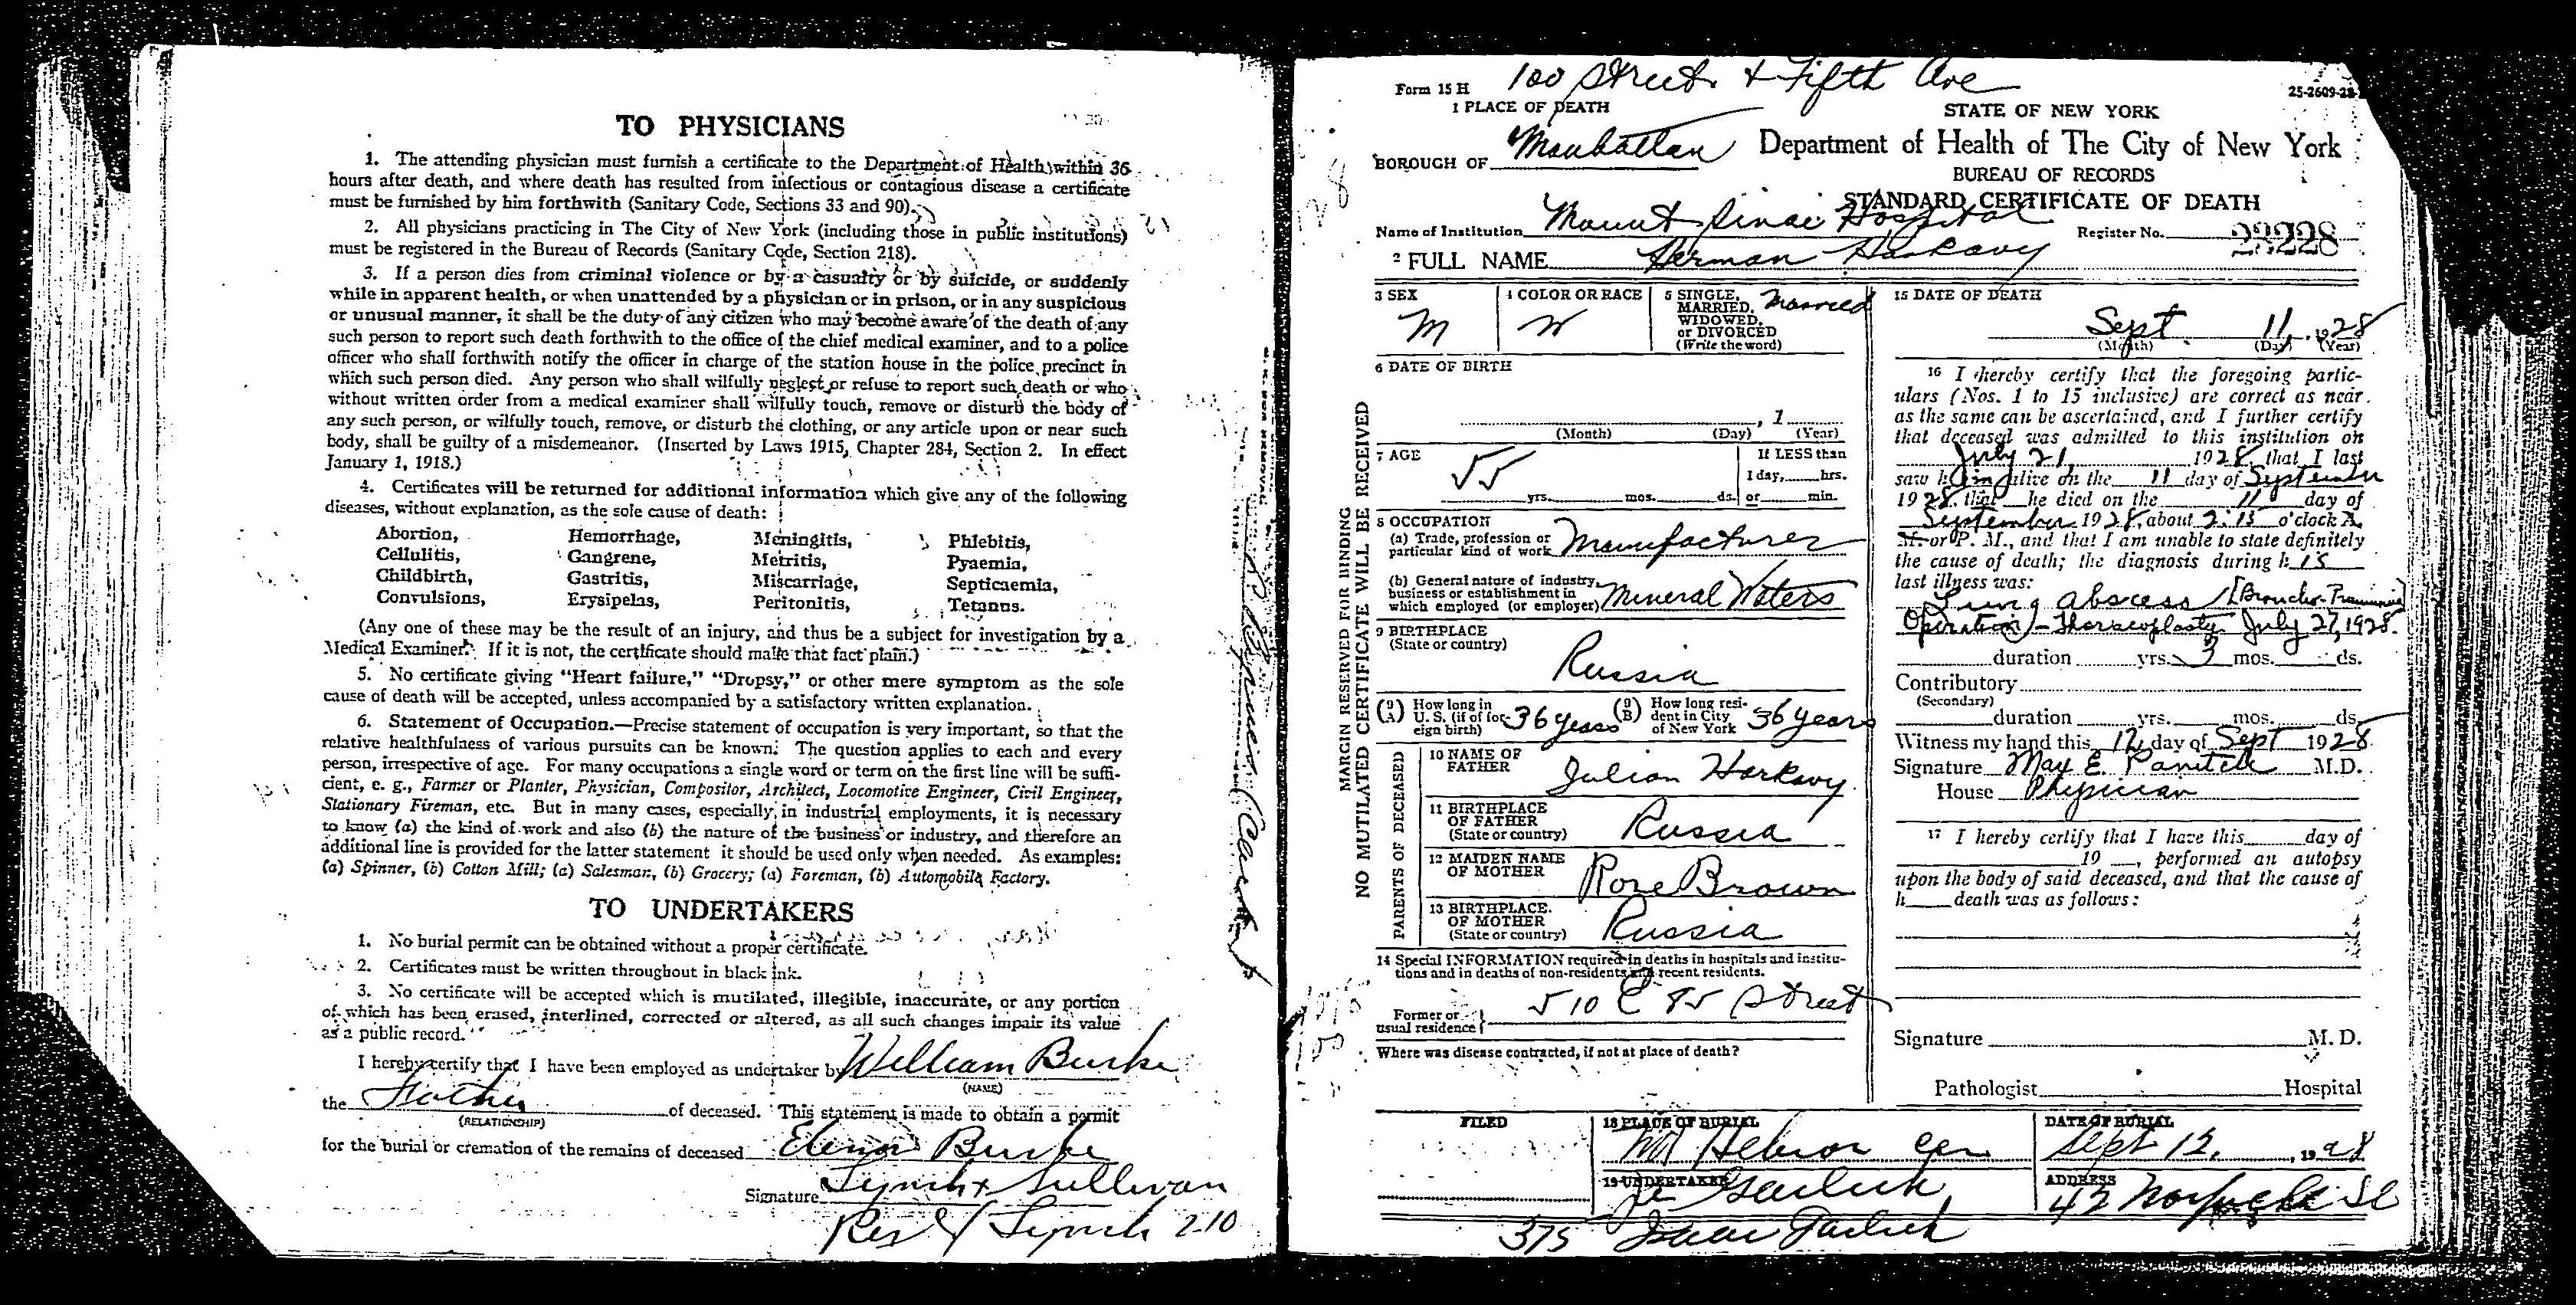 TO PHYSICIANS
1. The attending physician must furnish a certificate to the Department of Health within 36
hours after death, and where death has resulted from infectious or contagious disease a certificate
must be furnished by him forthwith (Sanitary Code, Sections 33 and 90).
2. All physicians practicing in The City of New York (including those in public institutions)
must be registered in the Bureau of Records (Sanitary Code, Section 218).
3. If a person dies from criminal violence or by a casualty or by suicide, or suddenly
while in apparent health, or when unattended by a physician or in prison, or in any suspicious
or unusual manner, it shall be the duty of any citizen who may become aware of the death of any
such person to report such death forthwith to the office of the chief medical examiner, and to a police
officer who shall forthwith notify the officer in charge of the station house in the police precinct in
which such person died. Any person who shall wilfully neglect or refuse to report such death or who
without written order from a medical examiner shall wilfully touch, remove or disturb the body of
any such person, or wilfully touch, remove, or disturb the clothing, or any article upon or near such
body, shall be guilty of a misdemeanor. (Inserted by Laws 1915, Chapter 284, Section 2. In effect
January 1, 1918.)
4. Certificates will be returned for additional information which give any of the following
diseases, without explanation, as the sole cause of death:
Abortion, Hemorrhage, Meningitis, Phlebitis,
Cellulitis, Gangrene, Metritis, Pyaemia,
Childbirth, Gastritis, Miscarriage, Septicaemia,
Convulsions, Erysipelas, Peritonitis, Tetanus.
(Any one of these may be the result of an injury, and thus be a subject for investigation by a
Medical Examiner. If it is not, the certificate should make that fact plain.)
5. No certificate giving "Heart failure," "Dropsy," or other mere symptom as the sole
cause of death will be accepted, unless accompanied by a satisfactory written explanation.
6. Statement of Occupation.—Precise statement of occupation is very important, so that the
relative healthfulness of various pursuits can be known. The question applies to each and every
person, irrespective of age. For many occupations a single word or term on the first line will be suffi-
cient, e. g., Farmer or Planter, Physician, Compositor, Architect, Locomotive Engineer, Civil Engineer,
Stationary Fireman, etc. But in many cases, especially in industrial employments, it is necessary
to know (a) the kind of work and also (b) the nature of the business or industry, and therefore an
additional line is provided for the latter statement it should be used only when needed. As examples:
(a) Spinner, (b) Cotton Mill; (a) Salesman, (b) Grocery; (a) Foreman, (b) Automobile Factory.
TO UNDERTAKERS
1. No burial permit can be obtained without a proper certificate.
2. Certificates must be written throughout in black ink.
3. No certificate will be accepted which is mutilated, illegible, inaccurate, or any portion
of which has been erased, interlined, corrected or altered, as all such changes impair its value
as a public record.
I hereby certify that I have been employed as undertaker by William Burke
(NAME)
the Father of deceased. This statement is made to obtain a permit
(RELATIONSHIP)
for the burial or cremation of the remains of deceased Elenor Burke
Signature Lynch & Sullivan
Lynch 210
Form 15 H 100 Street & Fifth Ave 25-2609-28
1 PLACE OF DEATH
STATE OF NEW YORK
BOROUGH OF Manhattan
Department of Health of The City of New York
BUREAU OF RECORDS
STANDARD CERTIFICATE OF DEATH
Name of Institution Mount Sinai Hospital Register No. 23228
2 FULL NAME Herman Harkavy
MARGIN RESERVED FOR BINDING
NO MUTILATED CERTIFICATE WILL BE RECEIVED
3 SEX M
4 COLOR OR RACE W
5 SINGLE, MARRIED, WIDOWED, or DIVORCED (Write the word) Married
6 DATE OF BIRTH
, 1
(Month) (Day) (Year)
7 AGE 55 If LESS than
1 day, hrs.
yrs. mos. ds. or min.
8 OCCUPATION
(a) Trade, profession or
particular kind of work Manufacturer
(b) General nature of industry,
business or establishment in
which employed (or employer) Mineral Waters
9 BIRTHPLACE
(State or country)
Russia
(9A) How long in U. S. (if of foreign birth) 36 years
(9B) How long resident in City of New York 36 years
PARENTS OF DECEASED
10 NAME OF
FATHER Julian Harkavy
11 BIRTHPLACE
OF FATHER
(State or country) Russia
12 MAIDEN NAME
OF MOTHER Rose Brown
13 BIRTHPLACE.
OF MOTHER
(State or country) Russia
14 Special INFORMATION required in deaths in hospitals and institu-
tions and in deaths of non-residents and recent residents.
Former or
usual residence 510 E 85 Street
Where was disease contracted, if not at place of death?
15 DATE OF DEATH
Sept 11, 1928
(Month) (Day) (Year)
16 I hereby certify that the foregoing partic-
ulars (Nos. 1 to 15 inclusive) are correct as near
as the same can be ascertained, and I further certify
that deceased was admitted to this institution on
July 21, 1928, that I last
saw him alive on the 11 day of September
1928, that he died on the 11 day of
September 1928, about 2:15 o'clock A.
M. or P. M., and that I am unable to state definitely
the cause of death; the diagnosis during his
last illness was:
Lung abscess
Operation - Thoracoplasty July 27, 1928.
duration yrs. 3 mos. ds.
Contributory
(Secondary)
duration yrs. mos. ds.
Witness my hand this 12 day of Sept 1928
Signature May E. M.D.
House Physician
17 I hereby certify that I have this day of
19 , performed an autopsy
upon the body of said deceased, and that the cause of
h death was as follows:
Signature M. D.
Pathologist Hospital
FILED
18 PLACE OF BURIAL
Mt Hebron Cem
DATE OF BURIAL
Sept 12, 1928
19 UNDERTAKER
Garlick
ADDRESS
42 Norfolk St
375 Isaac Garlick